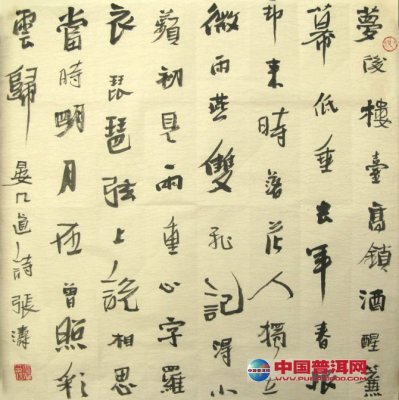 夢後樓臺高鎖酒醒簾
幕低垂去年春恨
却来時落花人獨立
微雨燕雙飛記得小
蘋初見兩重心字羅
衣琵琶弦上說相思
當時明月在曾照彩
雲歸 晏几道詩 張濤
中国普洱网